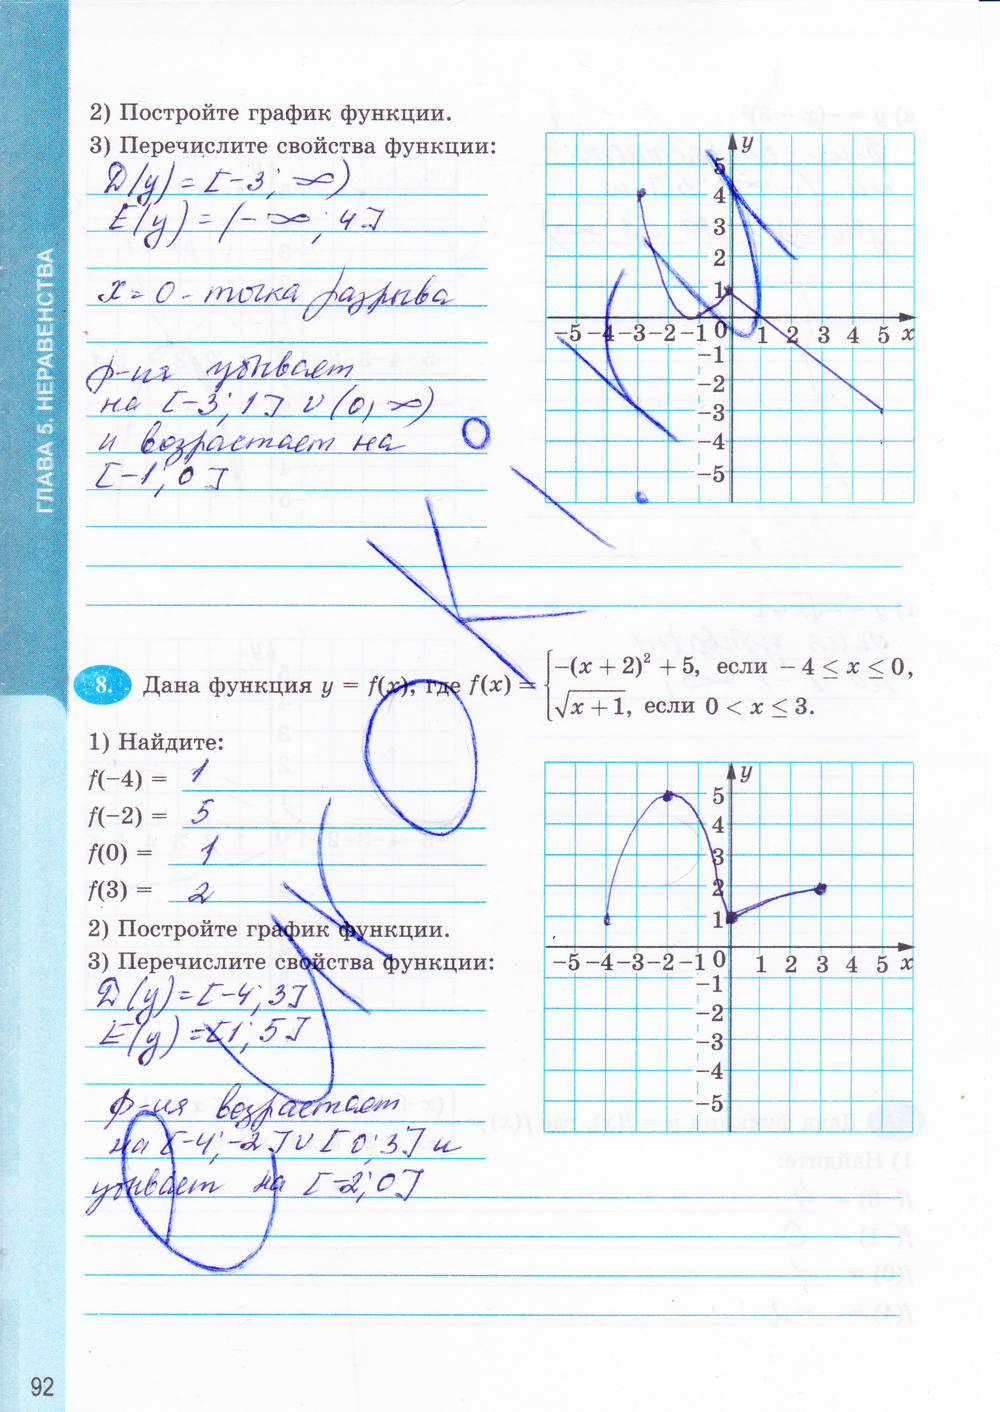 ГЛАВА 5. НЕРАВЕНСТВА
2) Постройте график функции.
3) Перечислите свойства функции:
D(y) = [-3; ∞)
E(y) = (-∞; 4]
x = 0 - точка разрыва
ф-ия убывает
на [-3; 1] ∪ (0, ∞)
и возрастает на
[-1; 0]
y
5
4
3
2
1
-5 -4 -3 -2 -1 0 1 2 3 4 5 x
-1
-2
-3
-4
-5
8. Дана функция y = f(x), где f(x) = { -(x + 2)² + 5, если - 4 ≤ x ≤ 0,
√x + 1, если 0 < x ≤ 3.
1) Найдите:
f(-4) = 1
f(-2) = 5
f(0) = 1
f(3) = 2
2) Постройте график функции.
3) Перечислите свойства функции:
D(y) = [-4; 3]
E(y) = [1; 5]
Ф-ия возрастает
на [-4; -2] ∪ [0; 3] и
убывает на [-2; 0]
y
5
4
3
2
1
-5 -4 -3 -2 -1 0 1 2 3 4 5 x
-1
-2
-3
-4
-5
92